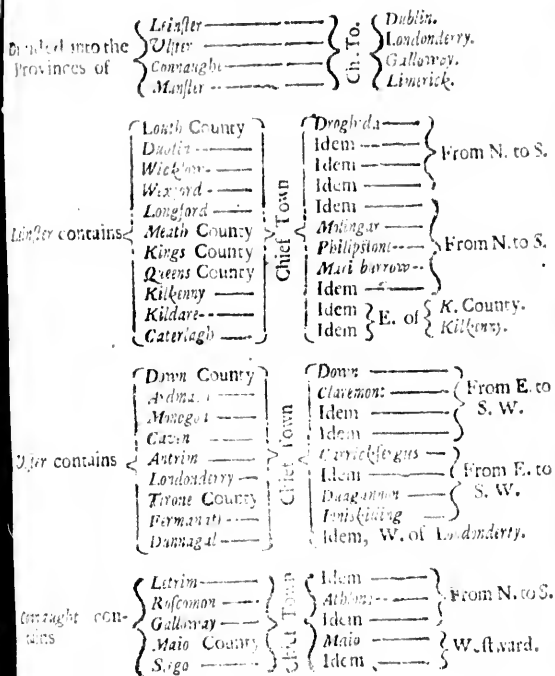 Divided into the Provinces of
Leinster
Ulster
Connaught
Munster
Ch. To.
Dublin.
Londonderry.
Galloway.
Limerick.
Leinster contains
Louth County
Dublin
Wicklow
Wexford
Longford
Meath County
Kings County
Queens County
Kilkenny
Kildare
Caterlagh
Chief Town
Drogheda
Idem
Idem
Idem
From N. to S.
Idem
Molingar
Philipstone
Mari burrow
Idem
From N. to S.
Idem
Idem
E. of
K. County.
Kilkenny.
Ulster contains
Down County
Monegot
Caven
Antrim
Londonderry
Tirone County
Fermanath
Dunnagal
Chief Town
Down
Claremont
Idem
Idem
From E. to S. W.
Carrickfergus
Idem
Dungannon
Inniskilling
From E. to S. W.
Idem, W. of Londonderty.
Connaught contains
Letrim
Roscomon
Galloway
Maio County
Slego
Chief Town
Idem
Athlone
Idem
From N. to S.
Maio
Idem
Westward.